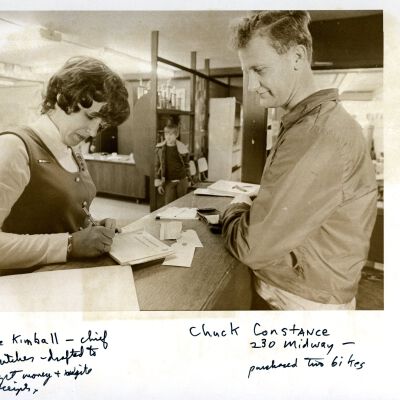 Kimball – chief
drafted to
money +
Chuck Constance
230 Midway –
purchased two bikes